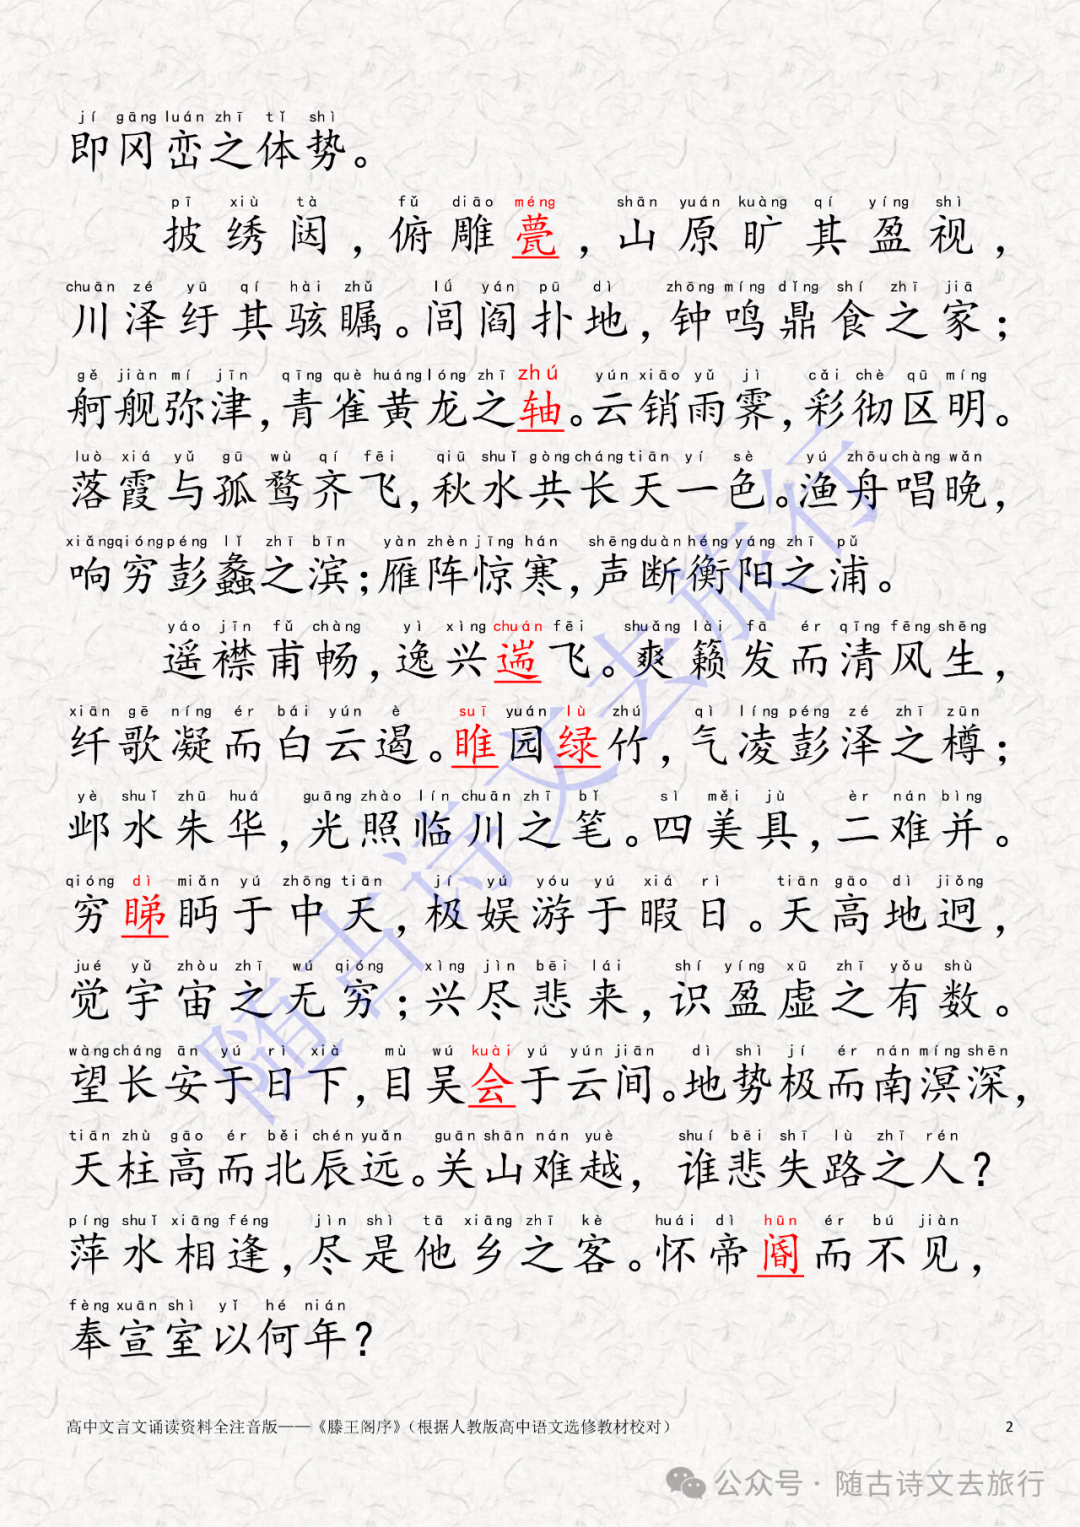 jí gāng luán zhī tǐ shì
即冈峦之体势。
pī xiù tà fǔ diāo méng shān yuán kuàng qí yíng shì
披绣闼，俯雕甍，山原旷其盈视，
chuān zé yū qí hài zhǔ lǘ yán pū dì zhōng míng dǐng shí zhī jiā
川泽纡其骇瞩。闾阎扑地，钟鸣鼎食之家；
gě jiàn mí jīn qīng què huáng lóng zhī zhú yún xiāo yǔ jì cǎi chè qū míng
舸舰弥津，青雀黄龙之轴。云销雨霁，彩彻区明。
luò xiá yǔ gū wù qí fēi qiū shuǐ gòng cháng tiān yí sè yú zhōu chàng wǎn
落霞与孤鹜齐飞，秋水共长天一色。渔舟唱晚，
xiǎng qióng péng lǐ zhī bīn yàn zhèn jīng hán shēng duàn héng yáng zhī pǔ
响穷彭蠡之滨；雁阵惊寒，声断衡阳之浦。
yáo jīn fǔ chàng yì xìng chuán fēi shuǎng lài fā ér qīng fēng shēng
遥襟甫畅，逸兴遄飞。爽籁发而清风生，
xiān gē níng ér bái yún è suī yuán lǜ zhú qì líng péng zé zhī zūn
纤歌凝而白云遏。睢园绿竹，气凌彭泽之樽；
yè shuǐ zhū huá guāng zhào lín chuān zhī bǐ sì měi jù èr nán bìng
邺水朱华，光照临川之笔。四美具，二难并。
qióng dì miǎn yú zhōng tiān jí yú yóu yú xiá rì tiān gāo dì jiǒng
穷睇眄于中天，极娱游于暇日。天高地迥，
jué yǔ zhòu zhī wú qióng xìng jìn bēi lái shí yíng xū zhī yǒu shù
觉宇宙之无穷；兴尽悲来，识盈虚之有数。
wàng cháng ān yú rì xià mù wú kuài yú yún jiān dì shì jí ér nán míng shēn
望长安于日下，目吴会于云间。地势极而南溟深，
tiān zhù gāo ér běi chén yuǎn guān shān nán yuè shuí bēi shī lù zhī rén
天柱高而北辰远。关山难越，谁悲失路之人？
píng shuǐ xiāng féng jìn shì tā xiāng zhī kè huái dì hūn ér bú jiàn
萍水相逢，尽是他乡之客。怀帝阍而不见，
fèng xuān shì yǐ hé nián
奉宣室以何年？
高中文言文诵读资料全注音版——《滕王阁序》（根据人教版高中语文选修教材校对） 2
随古诗文去旅行
公众号·随古诗文去旅行